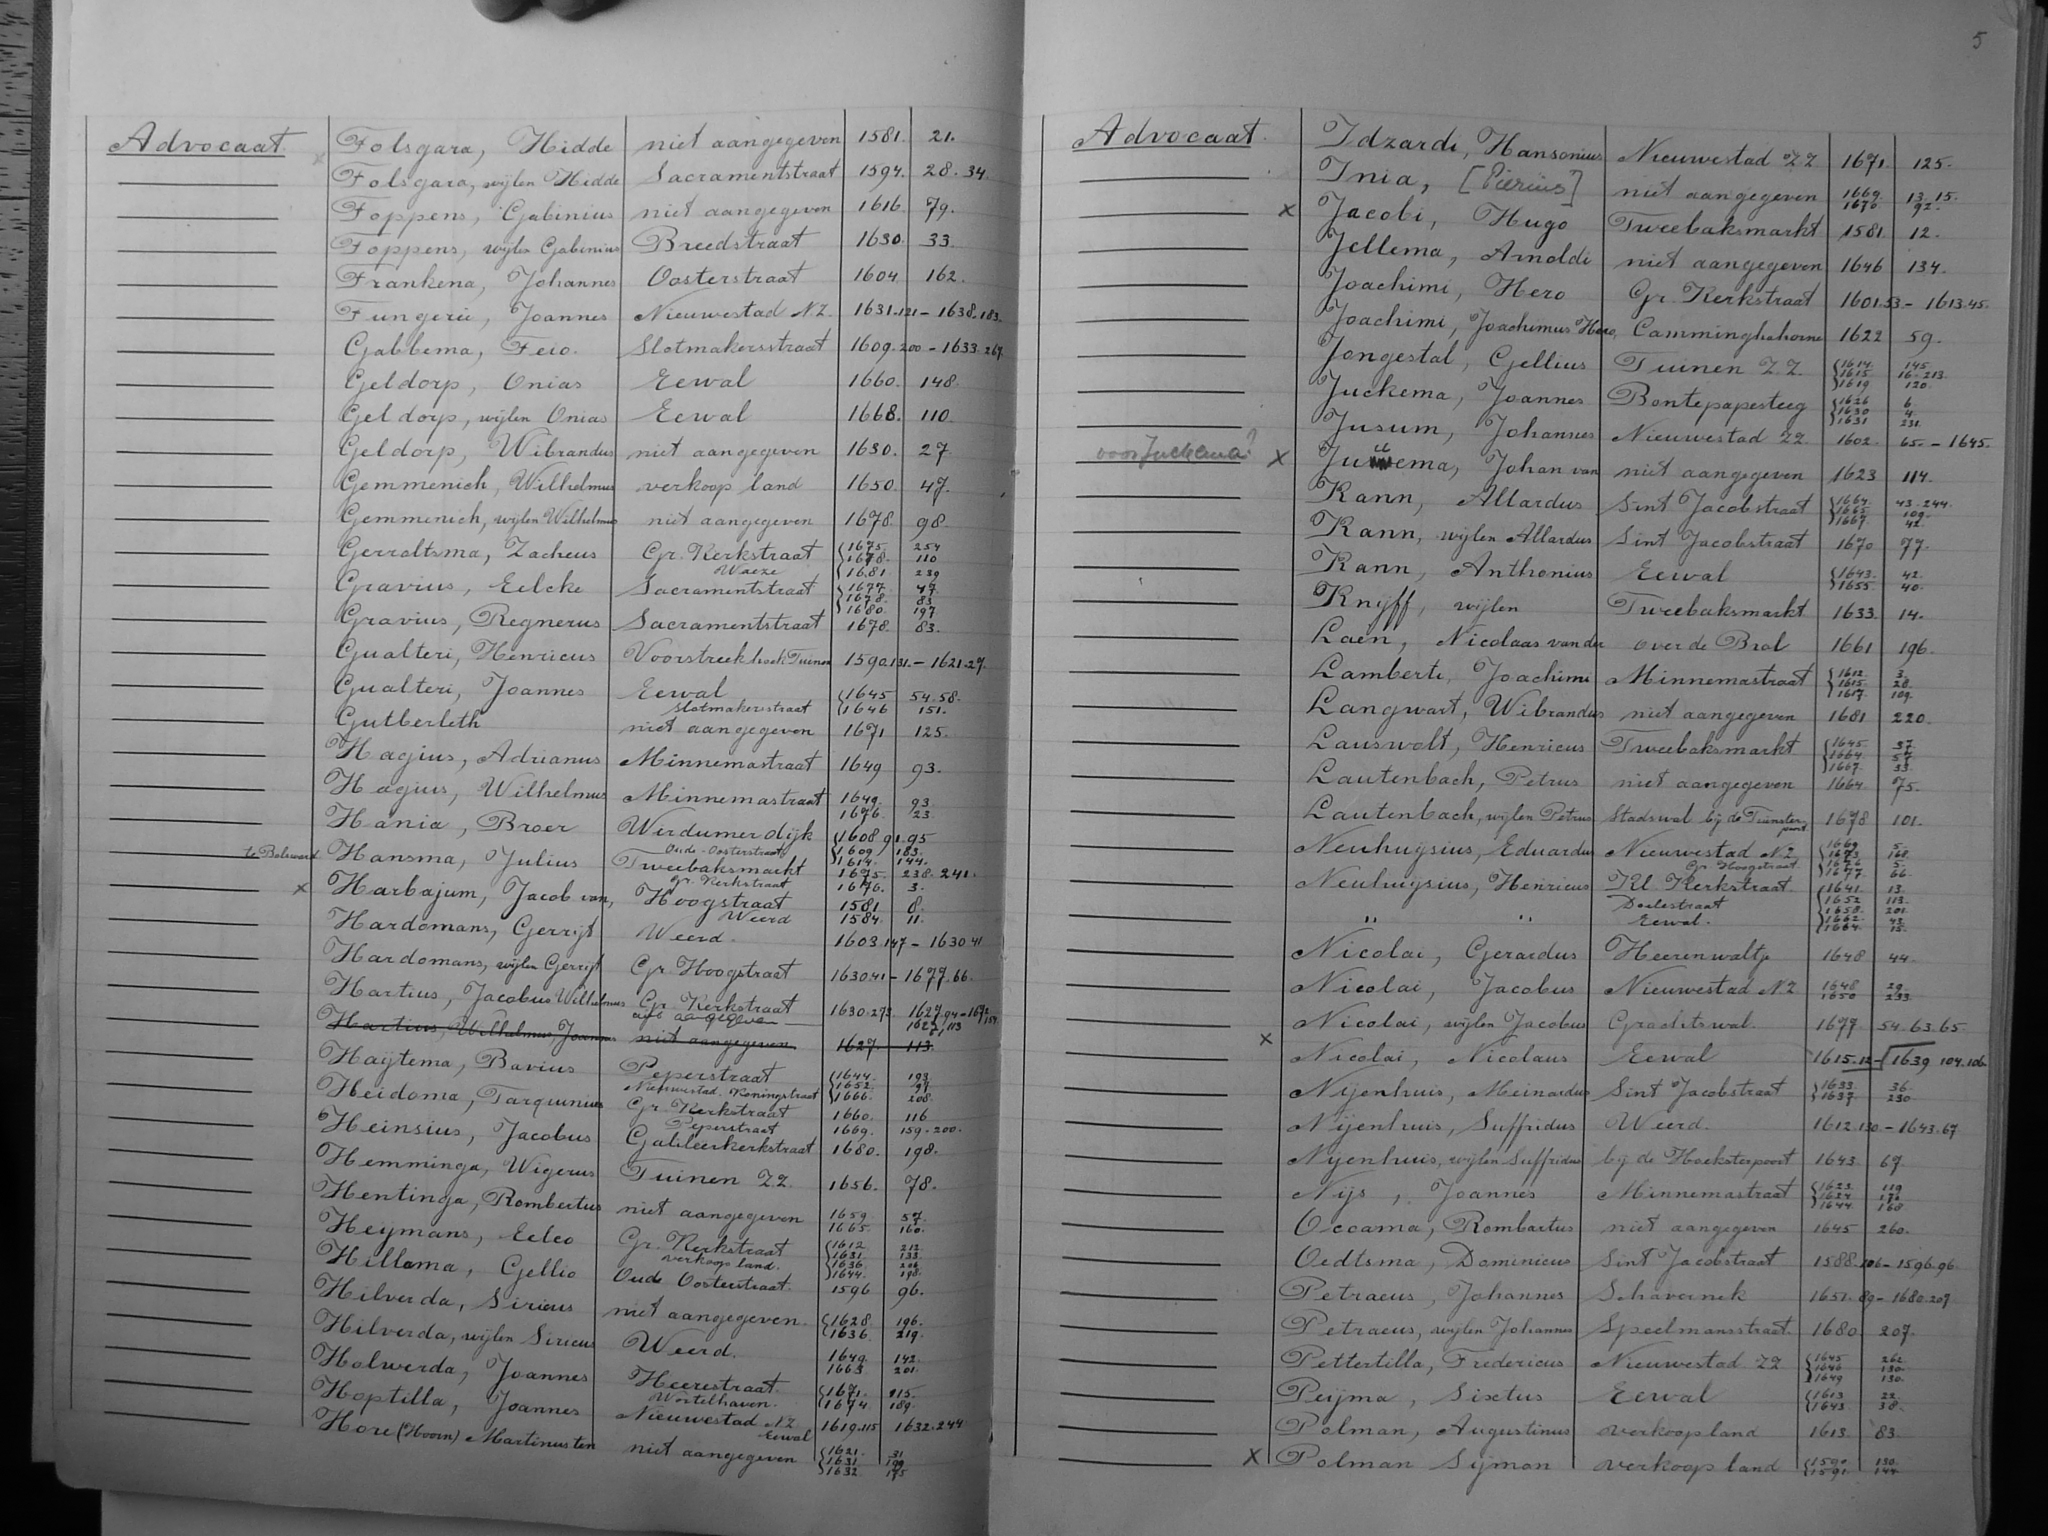 5
Advocaat. Folsgara, Hidde niet aangegeven 1581. 21.
x Folsgara, wijlen Hidde Sacramentstraat 1594. 28. 34.
Foppens, Gabinius niet aangegeven 1616. 79.
Foppens, wijlen Gabinius Breedstraat 1630. 33.
Frankena, Johannes Oosterstraat 1604. 162.
Fungeri, Joannes Nieuwestad NZ. 1631.121 – 1638.183.
Gabbema, Feio. Slotmakersstraat 1609.200 – 1633.267.
Geldorp, Onias Eewal 1660. 148.
Geldorp, wijlen Onias Eewal 1668. 110.
Geldorp, Wibrandus niet aangegeven 1630. 27.
Gemmenich, Wilhelmus verkoop land 1650. 47.
Gemmenich, wijlen Wilhelmus niet aangegeven 1678. 98.
Gerroltsma, Zacheus Gr. Kerkstraat 1675. 254
1678. 110
Waeze 1681 239
Gravius, Eelcke Sacramentstraat 1677. 47.
1678. 83.
1680. 197
Gravius, Regnerus Sacramentstraat 1678. 83.
Gualteri, Henricus Voorstreek hoek Tuinen 1590.131. – 1621.27.
Gualteri, Joannes Eewal 1645 54.58.
Slotmakersstraat 1646 151.
Gutberleth niet aangegeven 1671 125.
Hagius, Adrianus Minnemastraat 1649 93.
Hagius, Wilhelmus Minnemastraat 1649. 93.
1676. 23.
Hania, Broer Wirdumerdijk 1608 91.95
Oude Oosterstraat 1609 183.
1614. 144.
te Bolsward Hansma, Julius Tweebaksmarkt 1675. 238. 241.
Gr. Kerkstraat 1676. 3.
x Harbajum, Jacob van, Hoogstraat 1581 8.
Weerd 1584. 11.
Hardomans, Gerrijt Weerd. 1603.147 – 1630.41
Hardomans, wijlen Gerrijt Gr. Hoogstraat 1630.41 – 1677.66.
Hartius, Jacobus Wilhelmus Gr. Kerkstraat 1630.273
Hartius, Wilhelmus Joannes niet aangegeven 1627. 113.
Haijtema, Bavius Peperstraat 1644. 193.
1652. 97.
Nieuwestad. Koningstraat 1666. 208.
Heidoma, Tarquinius Gr. Kerkstraat 1660. 116
Peperstraat 1669. 159. 200.
Heinsius, Jacobus Galileerkerkstraat 1680. 198.
Hemminga, Wigerus Tuinen ZZ. 1656. 78.
Hentinga, Rombertus niet aangegeven 1659 57.
1665. 160.
Heymans, Eelco Gr. Kerkstraat 1612 212.
1631. 133.
verkoop land. 1636. 206.
1644. 198.
Hillama, Gellio Oude Oosterstraat. 1596 96.
Hilverda, Siricus niet aangegeven. 1628. 196.
1636. 219.
Hilverda, wijlen Siricus Weerd. 1649. 142.
1663 201.
Holwerda, Joannes Heerestraat. 1671. 115.
Wortelhaven. 1674. 189.
Hoptilla, Joannes Nieuwestad NZ. 1619.115 1632.244
Eewal
Hore (Hoorn) Martinus ten niet aangegeven 1621. 31
1631 199
1632 175
Advocaat. Idzardi, Hansonius Nieuwestad ZZ 1671. 125.
Inia, [Pierius?] niet aangegeven 1669. 13.15.
1670 92.
x Jacobi, Hugo Tweebaksmarkt 1581. 12.
Jellema, Arnoldi niet aangegeven 1646 134.
Joachimi, Hero Gr. Kerkstraat 1601.53 – 1613.45.
Joachimi, Joachimus Hero, Camminghahorne 1622 59.
Jongestal, Gellius Tuinen ZZ. 1614. 145.
1615. 16. 213.
1619 120.
Juckema, Joannes Bontepapesteeg 1626 6.
1630 4.
1631 231.
Jusum, Johannes Nieuwestad ZZ. 1602. 65. – 1645.
voor Juckema? x Juckema, Johan van niet aangegeven 1623 114.
Kann, Allardus Sint Jacobstraat 1664. 43. 244.
1665. 109.
1667. 42.
Kann, wijlen Allardus Sint Jacobstraat 1670 77.
Kann, Anthonius Eewal 1643. 42.
1655. 40.
Knijff, wijlen Tweebaksmarkt 1633. 14.
Laen, Nicolaas van der over de Brol 1661 196.
Lamberti, Joachimi Minnemastraat 1612. 3.
1615. 28.
1617. 109.
Langwart, Wibrandus niet aangegeven 1681 220.
Lauswolt, Henricus Tweebaksmarkt 1645. 37.
1664. 57.
1667. 33.
Lautenbach, Petrus niet aangegeven 1664 75.
Lautenbach, wijlen Petrus Stadswal bij de Tuinster poort 1678 101.
Neuhuysius, Eduardus Nieuwestad NZ. 1669. 5.
1673. 168.
Gr. Hoogstraat 1676 5.
1677. 66.
Neuhuysius, Henricus Kl. Kerkstraat. 1641. 13.
Doelestraat 1652 113.
1658. 201.
" " Eewal. 1662. 43.
1664. 15.
Nicolai, Gerardus Heerenwaltje 1648 44.
Nicolai, Jacobus Nieuwestad NZ 1648 29.
1650 233.
Nicolai, wijlen Jacobus Grachtswal. 1677. 54. 63. 65.
x Nicolai, Nicolaus Eewal 1615.12 – 1639 104.106.
Nijenhuis, Meinardus Sint Jacobstraat 1633. 36.
1637. 230.
Nijenhuis, Suffridus Weerd. 1612.130 – 1643.67
Nijenhuis, wijlen Suffridus bij de Hoeksterpoort 1643. 67.
Nijs, Joannes Minnemastraat 1623. 119
1624. 176.
1644. 168.
Ocoama, Rombartus niet aangegeven 1645 260.
Oedtsma, Dominicus Sint Jacobstraat 1588.106 – 1596.96.
Petraeus, Johannes Schavernek 1651.89 – 1680.207.
Petraeus, wijlen Johannes Speelmansstraat. 1680. 207.
Pettertilla, Fredericus Nieuwestad ZZ 1645 262.
1646 130.
1649 130.
Peijma, Sixtus Eewal 1613 22.
1643. 38.
Polman, Augustinus verkoop land 1613. 83.
x Polman Sijmon verkoop land 1590. 130.
1591. 144.